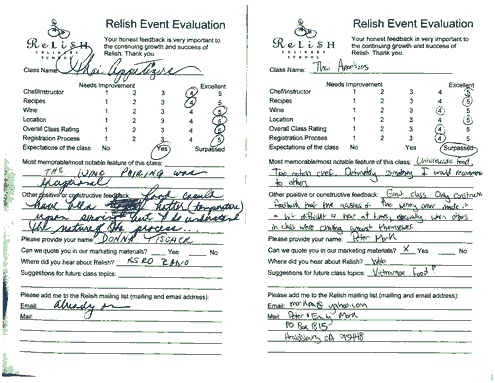 Relish Event Evaluation
ReLiSH
CULINARY
SCHOOL
Your honest feedback is very important to
the continuing growth and success of
Relish. Thank you.
Class Name: Thai Appetizers
Needs Improvement Excellent
Chef/Instructor 1 2 3 4 5
Recipes 1 2 3 4 5
Wine 1 2 3 4 5
Location 1 2 3 4 5
Overall Class Rating 1 2 3 4 5
Registration Process 1 2 3 4 5
Expectations of the class No Yes Surpassed
Most memorable/most notable feature of this class:
THE WINE PAIRING WAS
Other positive or constructive feedback: Food could
have been better (temperature)
upon service but I do understand
the nature of the process...
Please provide your name: DONNA
Can we quote you in our marketing materials? Yes No
Where did you hear about Relish? KSRO RADIO
Suggestions for future class topics:
Please add me to the Relish mailing list (mailing and email address):
Email: already on
Mail:
Relish Event Evaluation
ReLiSH
CULINARY
SCHOOL
Your honest feedback is very important to
the continuing growth and success of
Relish. Thank you.
Class Name: Thai Appetizers
Needs Improvement Excellent
Chef/Instructor 1 2 3 4 5
Recipes 1 2 3 4 5
Wine 1 2 3 4 5
Location 1 2 3 4 5
Overall Class Rating 1 2 3 4 5
Registration Process 1 2 3 4 5
Expectations of the class No Yes Surpassed
Most memorable/most notable feature of this class: food,
chef. Definitely something I would recommend
to others
Other positive or constructive feedback: Great class. Only constructive
feedback that the acoustics of the winery room made it
a bit difficult to hear at times, especially when others
in class were chatting amongst themselves
Please provide your name: Peter Mork
Can we quote you in our marketing materials? X Yes No
Where did you hear about Relish? Web
Suggestions for future class topics: Vietnamese food?
Please add me to the Relish mailing list (mailing and email address):
Email: @yahoo.com
Mail: Peter & Emily Mork
PO Box 1815
Healdsburg CA 95448